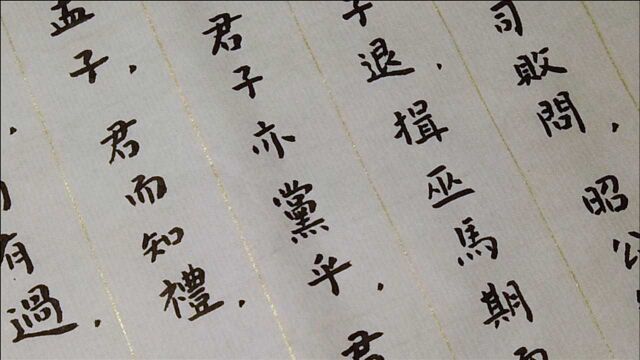 司敗問，昭公
子退，揖巫馬期而
君子亦黨乎，君
孟子，君而知禮，
有過，